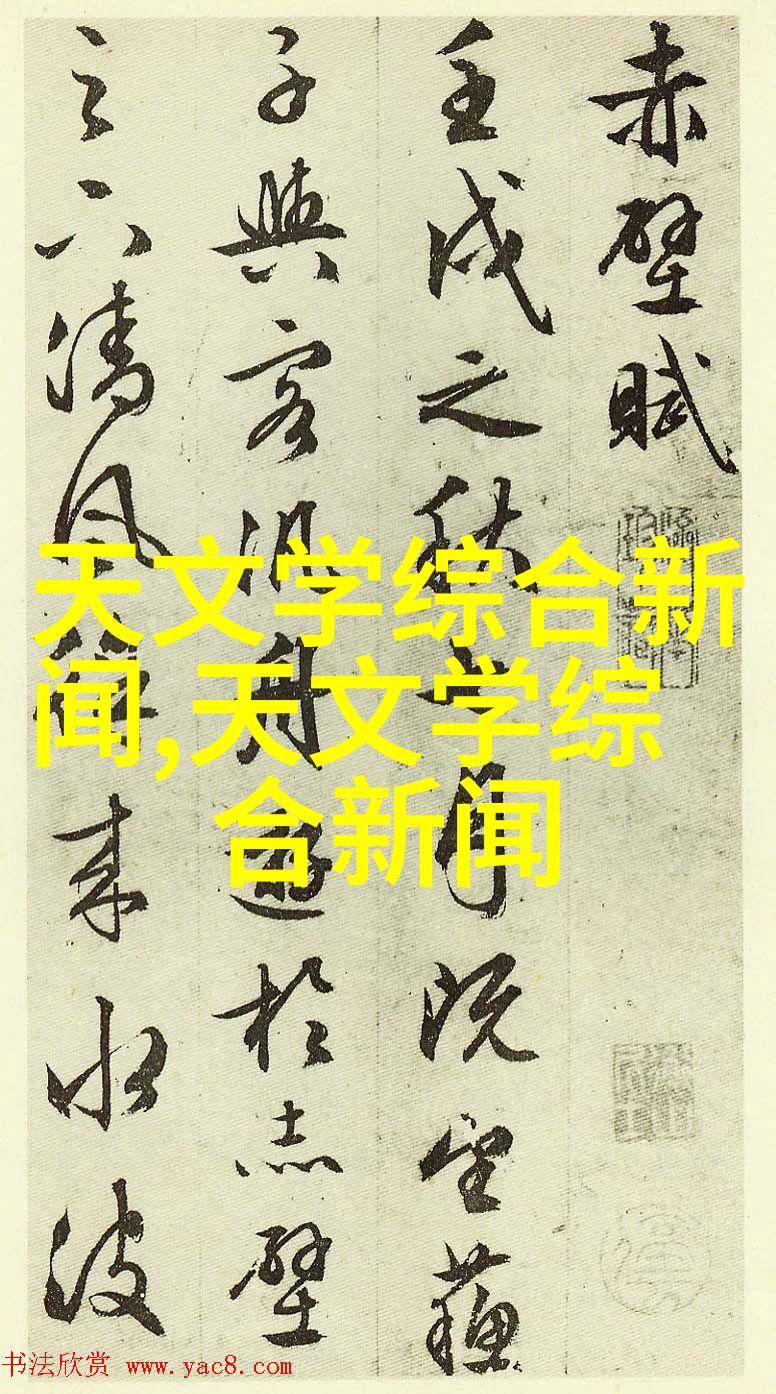 赤壁賦
壬戌之秋七月既望蘇
子與客汎舟遊於赤壁
之下清風徐來水波
天文学综合新
闻,天文学综
合新闻
书法欣赏 www.yac8.com